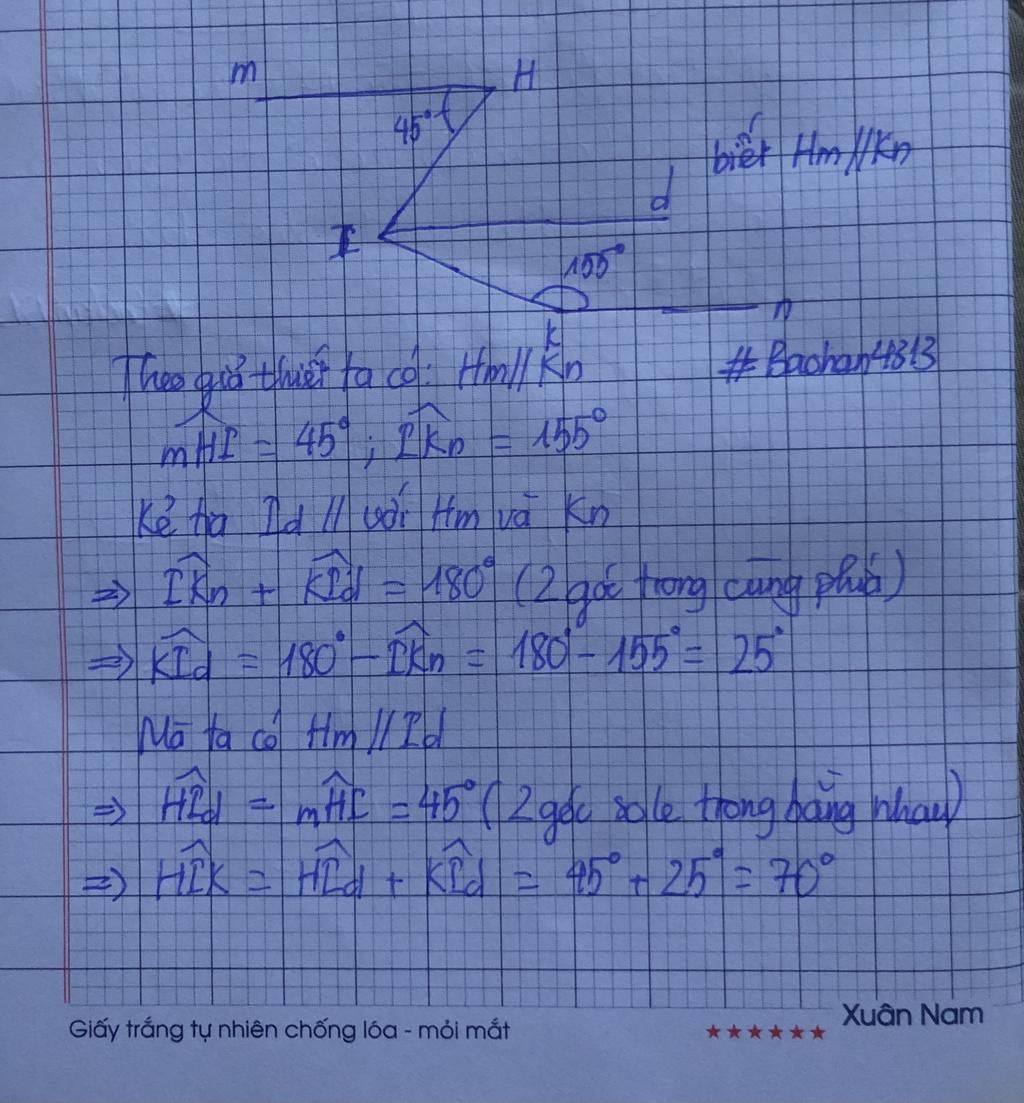 m
H
45°
biết Hm//Kn
d
I
155°
K
n
Theo giả thiết ta có: Hm//Kn
#Baohan4813
mHI = 45°; IKn = 155°
Kẻ tia Id // với Hm và Kn
=> IKn + KId = 180° (2 góc trong cùng phía)
=> KId = 180° - IKn = 180° - 155° = 25°
Mà ta có Hm//Id
=> HId = mHI = 45° (2 góc sole trong bằng nhau)
=> HIK = HId + KId = 45° + 25° = 70°
Giấy trắng tự nhiên chống lóa - mỏi mắt
Xuân Nam